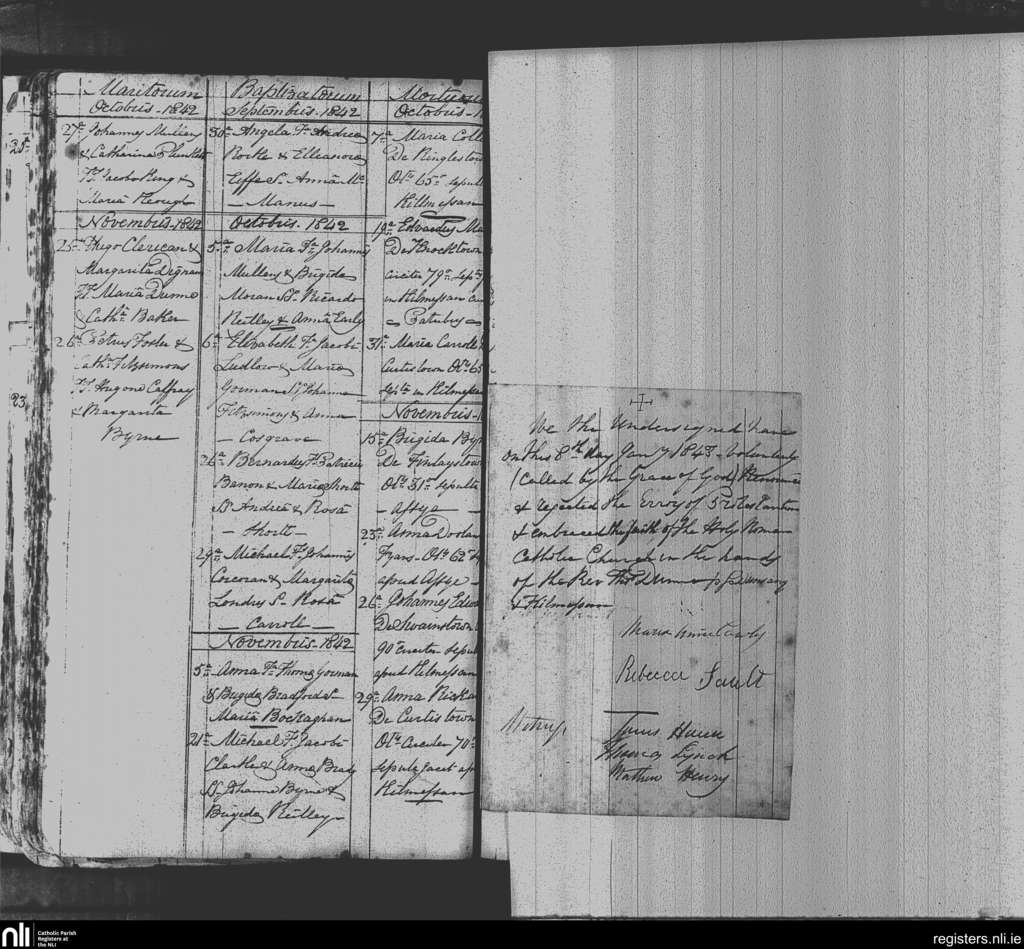 Maritorum
Octobris - 1842
27ª Johannes
& Catharina Plunkett
Tt. Jacobo King &
Maria Keough
Novembris - 1842
25ª Hugo Clerican &
Margarita Dignam
Tt. Maria Dunne
& Cathª Baker
26ª Petrus Foster &
Cathª Fitzsimons
Tt. Hugone Caffrey
& Margarita
Byrne
Baptizatorum
Septembris - 1842
30ª Angela Fª Andrea
Rorke & Elleanora
Sˢ Anna Mc
Manus
Octobris - 1842
5ª Maria Fª Johannis
Mullen & Brigida
Moran Sˢ Ricardo
Reilley & Anna Early
6ª Elizabeth Fª Jacobi
Ludlow & Maria
Gorman Sˢ Johanne
Fitzsimons & Anna
Cosgrave
26ª Bernardus Fˢ Patricii
Banon & Maria Shortt
Sˢ Andrea & Rosa
Shortt
29ª Michael Fˢ Johannis
Corcoran & Margarita
Sˢ Rosa
Carroll
Novembris - 1842
5ª Anna Fª Thoma Gorman
& Brigida Bradford Sˢ
Maria
21ª Michael Fˢ Jacobi
Clarke & Anna Brady
Sˢ Johanne Byrne &
Brigida Reilley
Octobris - 1
7ª Maria Coll
De Ringlestow
Obt 65º sepult
Killmessan
19ª Edvardus Ma
De Brocktown
circiter 79º sept
in Kilmessan cu
Patribus
31ª Maria Carroll
Curtistown Obt 65
septª in Kilmessan
Novembris - 1
15ª Brigida By
De Finlaystow
Obt 31º sepulta
Assye
23ª Anna Doolan
Obt 62º
apud Assye
26ª Johannes Edw
De Swainstown
90 circiter sepul
apud Kilmessan
29ª Anna
De Curtistown
Obt Circiter 70º
sepulta jacet ap
Kilmessan
25ª
23
We the Undersigned have
on this 8th day Jany 1843 - voluntarily
(Called by the Grace of God) Renounced
& rejected the Errors of Protestantism
& embraced the faith of the Holy Roman
Catholic Church in the hands
of the Rev Thos Dunne pp Dunsany
& Kilmessan
Maria
Rebecca Sault
Witness
James
Thomas Lynch
Mathew Henry
nli
Catholic Parish
Registers at
the NLI
registers.nli.ie